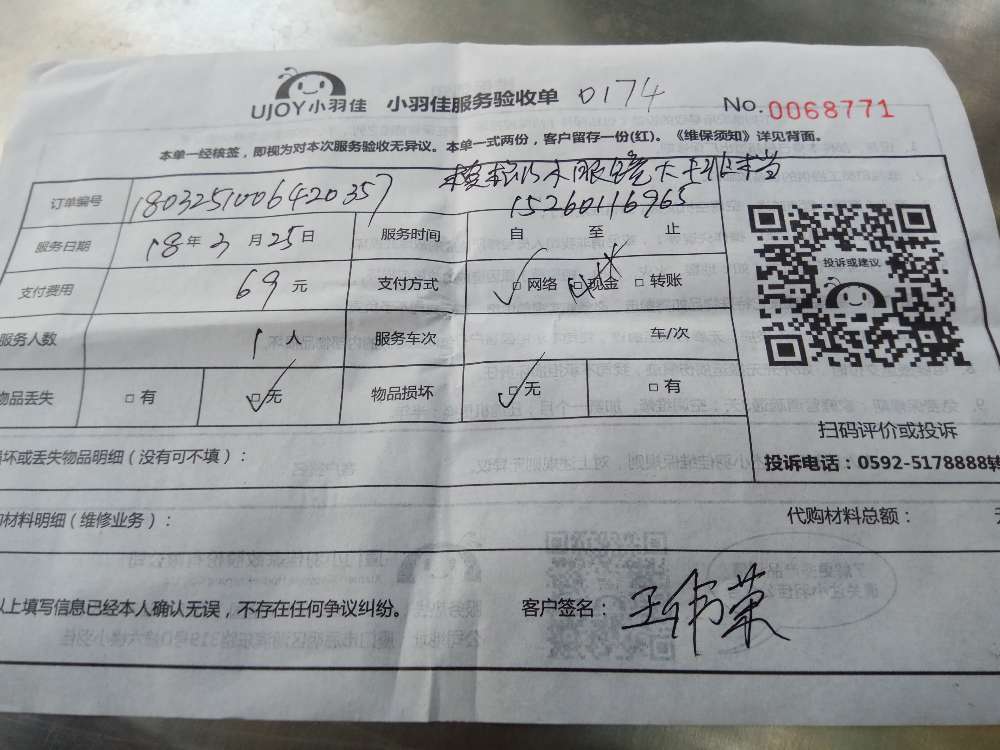 UJOY小羽佳 小羽佳服务验收单 0174
No.0068771
本单一经核签，即视为对本次服务验收无异议。本单一式两份，客户留存一份(红)。《维保须知》详见背面。
订单编号 1803251006420357 15260116965
服务日期 18年3月25日 服务时间 自 至 止
支付费用 69元 支付方式 □网络 □现金 □转账
服务人数 1人 服务车次 车/次
物品丢失 □有 □无 物品损坏 □无 □有
投诉或建议
扫码评价或投诉
投诉电话：0592-5178888转
坏或丢失物品明细（没有可不填）：
材料明细（维修业务）： 代购材料总额：
以上填写信息已经本人确认无误，不存在任何争议纠纷。 客户签名：王伟荣